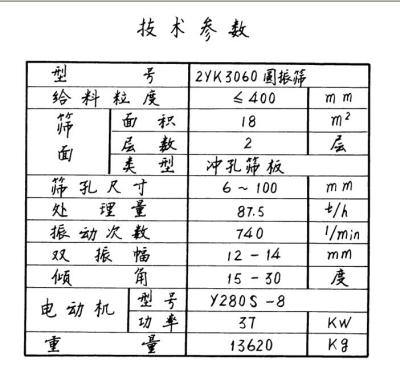 技术参数
型号 2YK3060圆振筛
给料粒度 ≤400 mm
筛面 面积 18 m²
层数 2 层
类型 冲孔筛板
筛孔尺寸 6~100 mm
处理量 87.5 t/h
振动次数 740 1/min
双振幅 12-14 mm
倾角 15-30 度
电动机 型号 Y280S-8
功率 37 KW
重量 13620 Kg